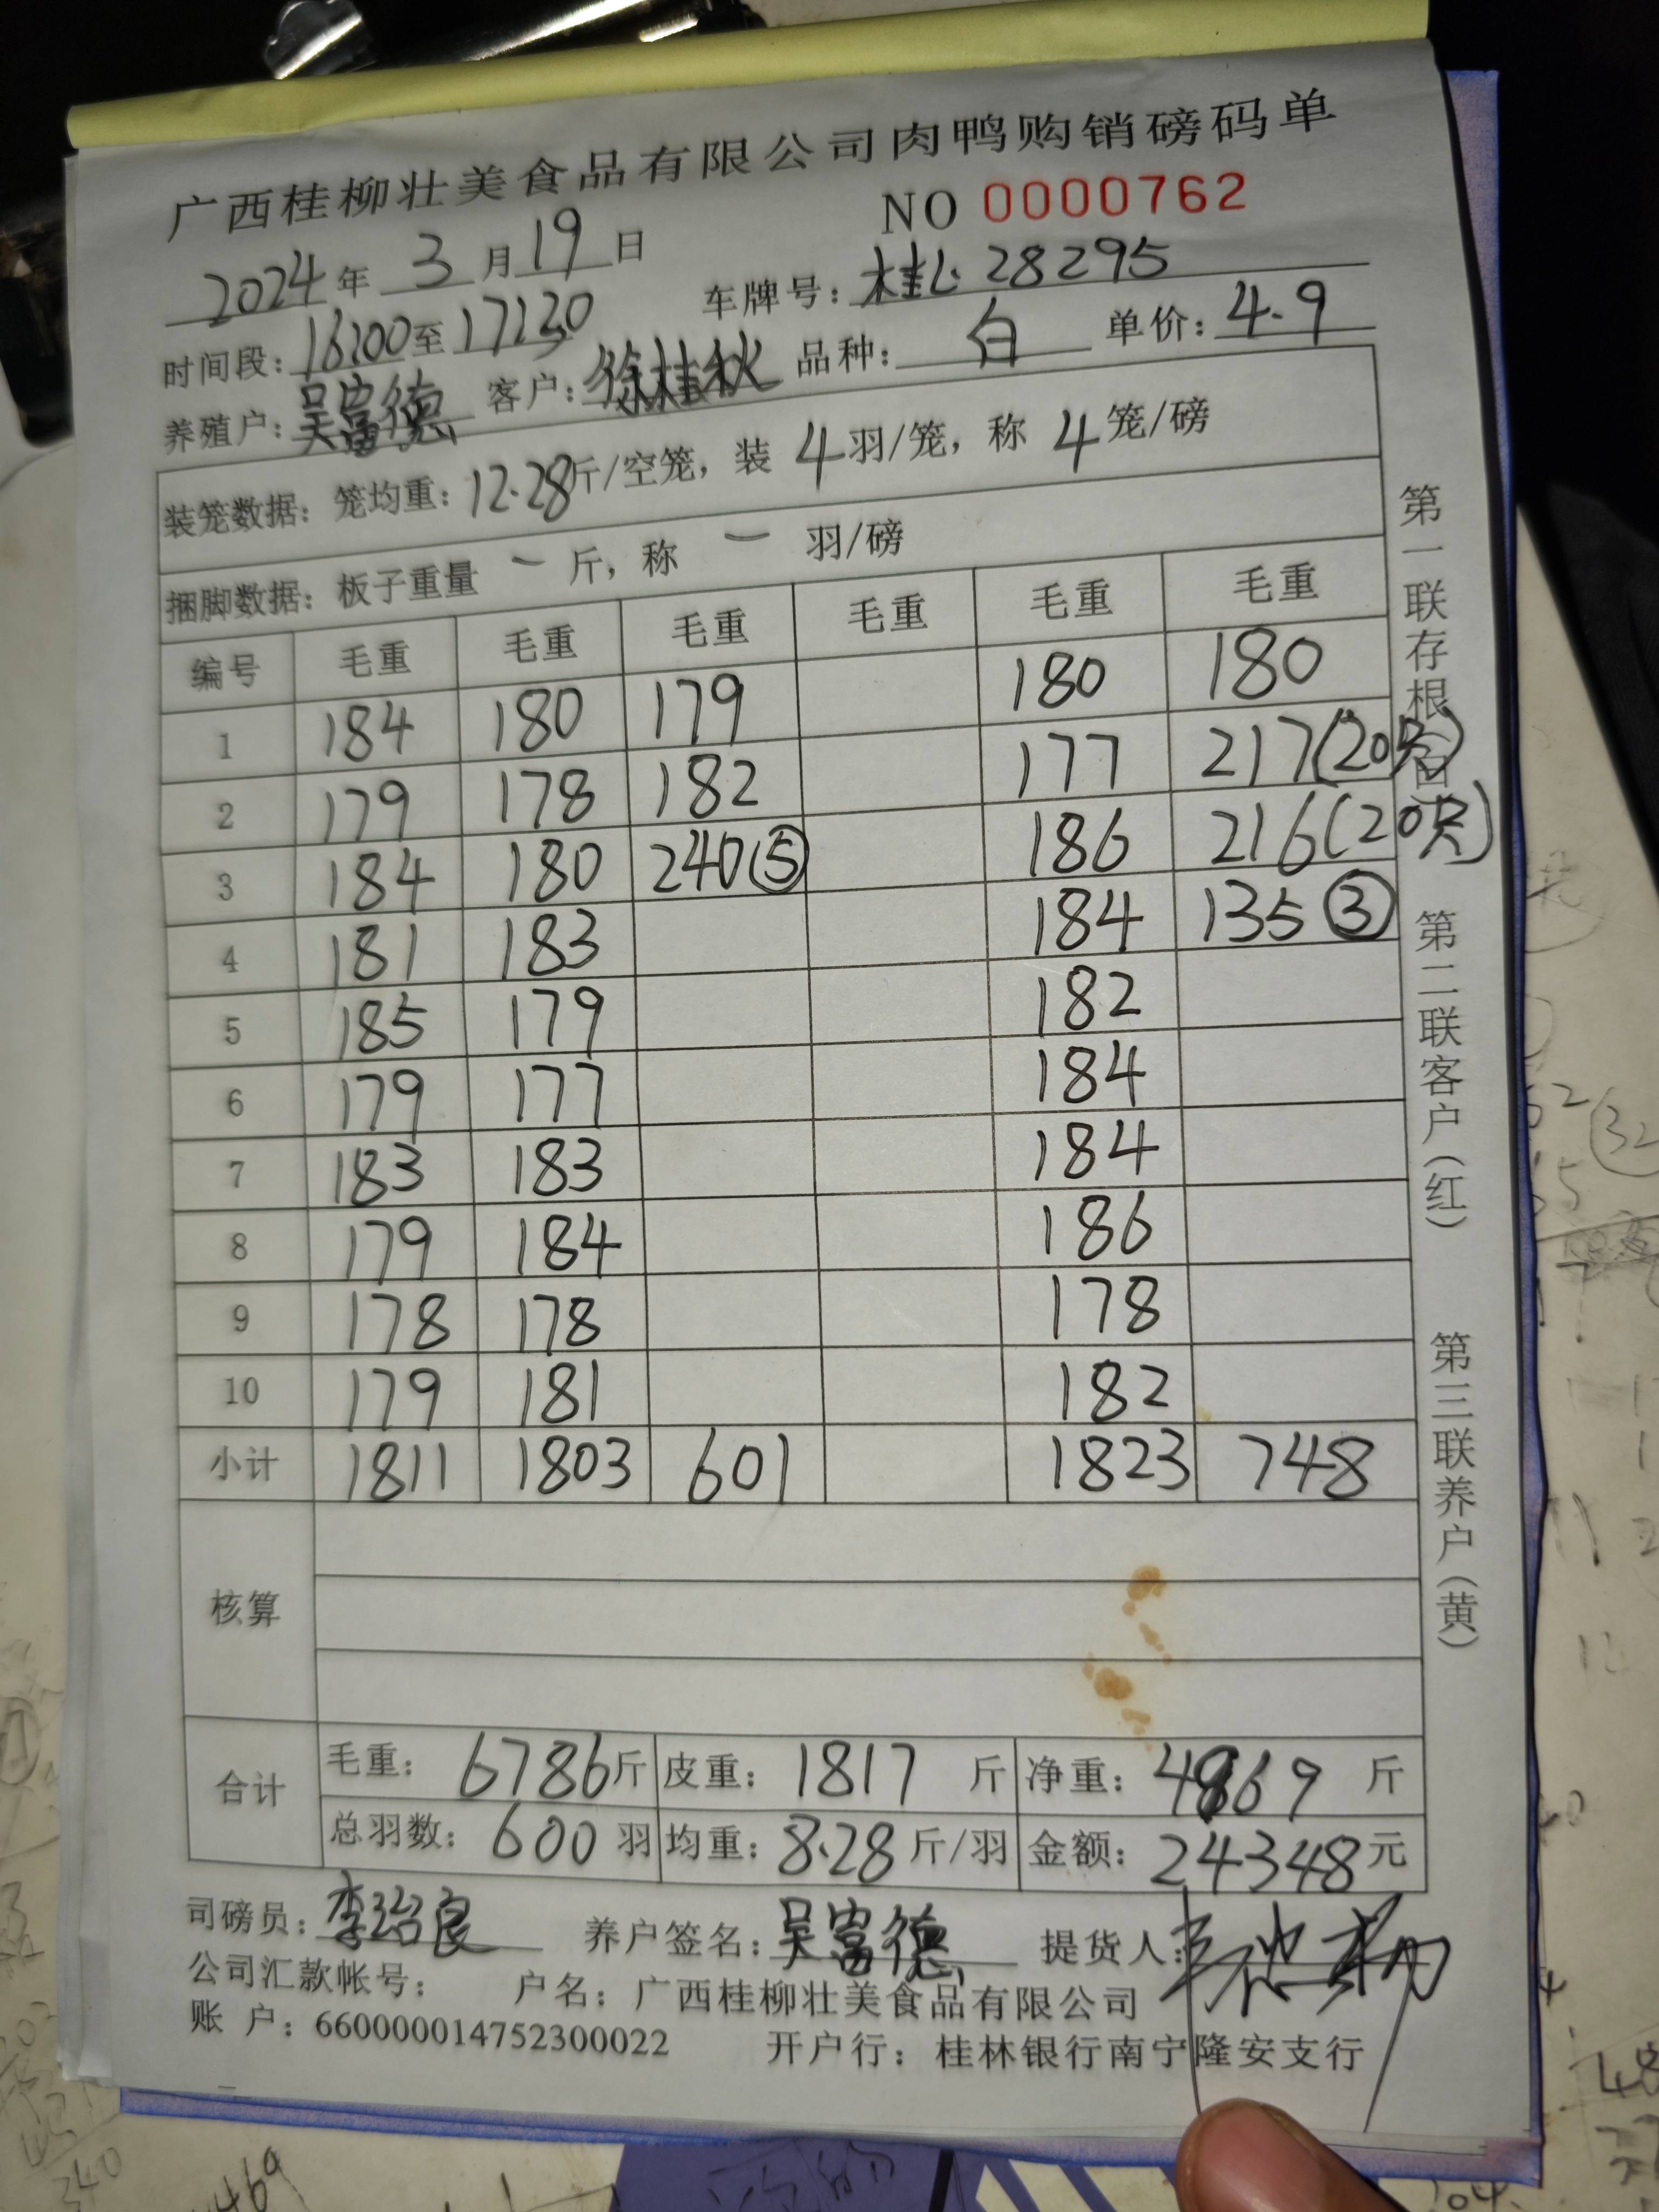 广西桂柳壮美食品有限公司肉鸭购销磅码单
NO 0000762
2024年 3月19日
车牌号：桂L 28295
时间段：16:00至17:30
养殖户：吴富德 客户：徐桂秋 品种：白 单价：4.9
装笼数据：笼均重：12.28斤/空笼，装 4羽/笼，称 4笼/磅
捆脚数据：板子重量 一 斤，称 一 羽/磅
编号 毛重 毛重 毛重 毛重 毛重 毛重
1 184 180 179 180 180
2 179 178 182 177 217(20只)
3 184 180 240⑤ 186 216(20只)
4 181 183 184 135③
5 185 179 182
6 179 177 184
7 183 183 184
8 179 184 186
9 178 178 178
10 179 181 182
小计 1811 1803 601 1823 748
核算
合计 毛重：6786斤 皮重：1817 斤 净重：4969 斤
总羽数：600羽 均重：8.28斤/羽 金额：24348元
司磅员：李绍良 养户签名：吴富德 提货人：
公司汇款帐号： 户名：广西桂柳壮美食品有限公司
账 户：660000014752300022 开户行：桂林银行南宁隆安支行
第一联存根
第二联客户(红)
第三联养户(黄)